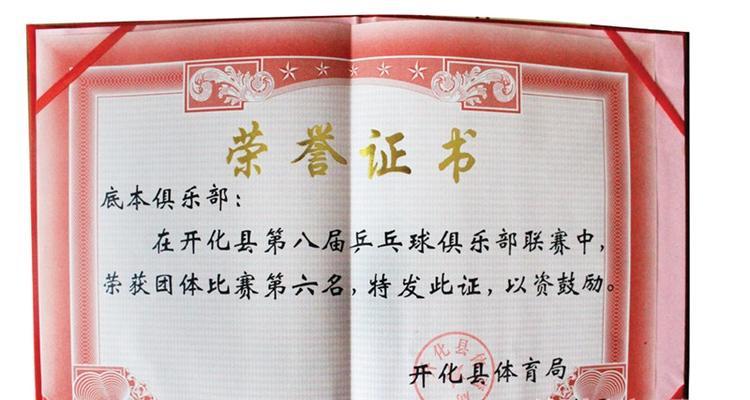 荣誉证书
底本俱乐部：
在开化县第八届乒乓球俱乐部联赛中，
荣获团体比赛第六名，特发此证，以资鼓励。
开化县体育局